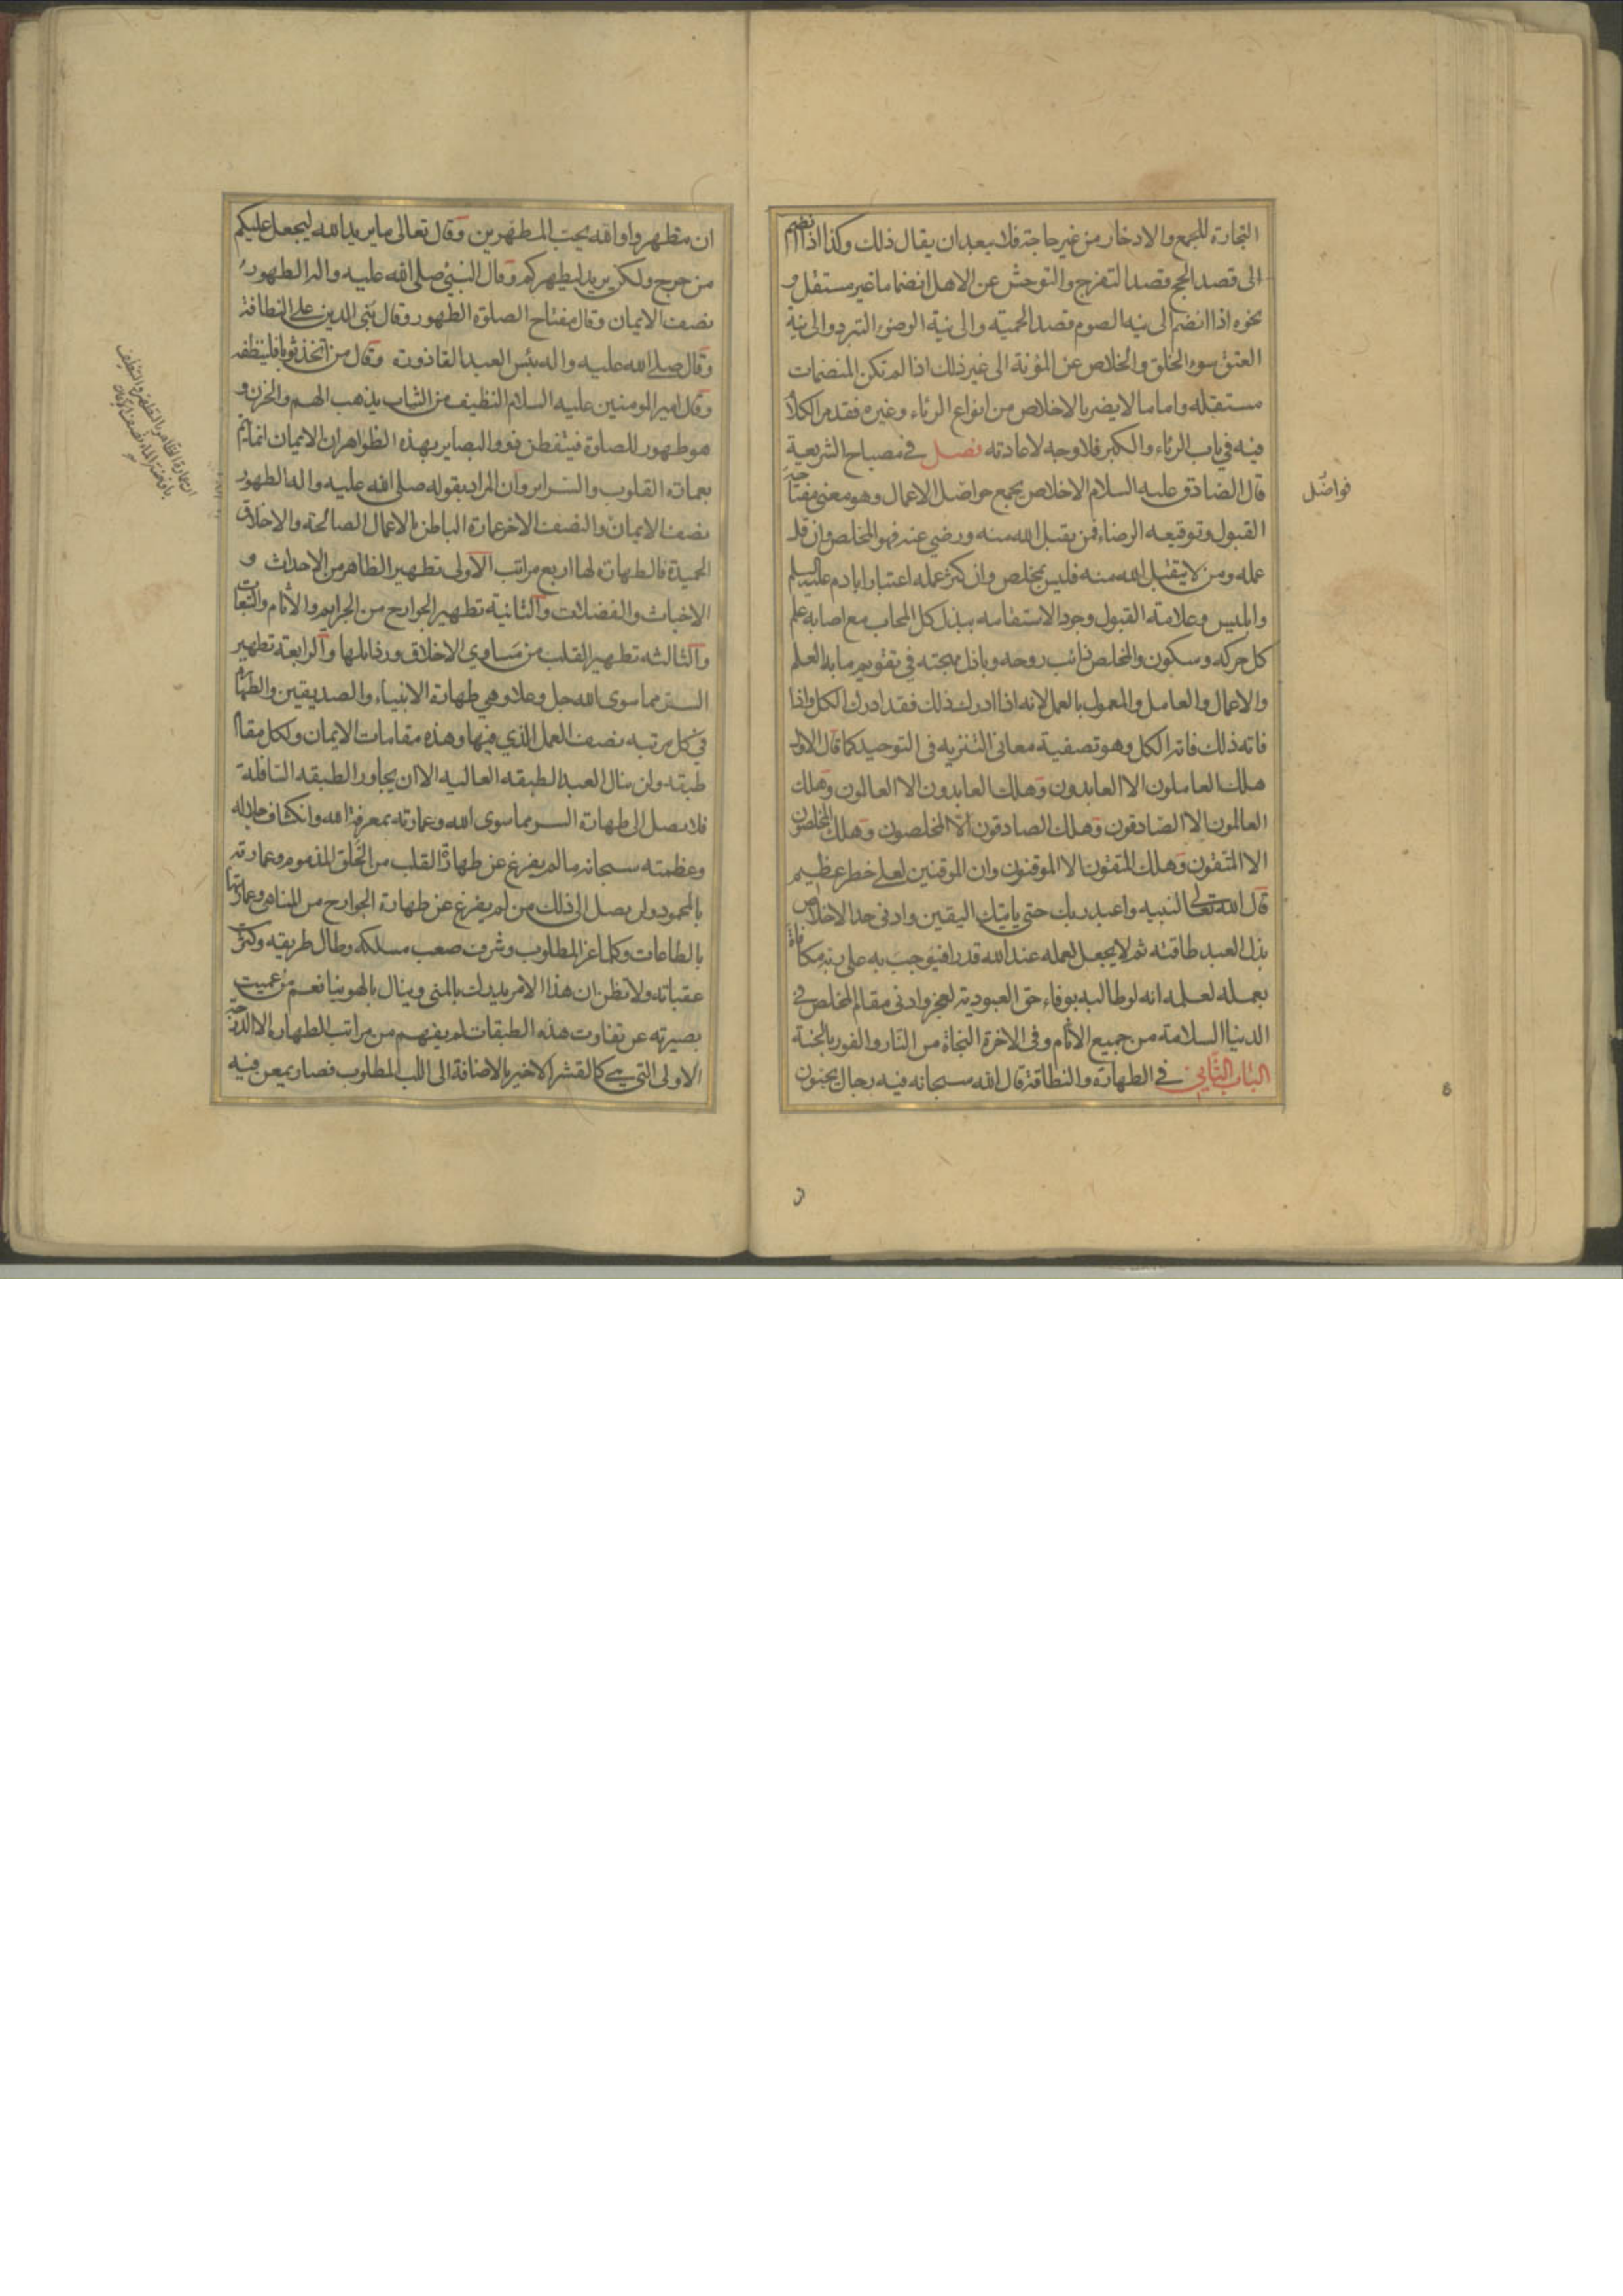 التجارة للجمع والادخار من غير حاجة فلا يبعد ان يقال ذلك وكذا اذا انضم
الى قصد الحج قصد التفرج والتوحش عن الاهل انضماما غير مستقل و
نحوه اذا انضم الى نيه الصوم قصد الحميته والى نية الوضوء التبرد والى نية
العتق سوء الخلق والخلاص عن المؤنة الى غير ذلك اذا لم تكن المنضمات
مستقله واما ما لا يضر بالاخلاص من انواع الرئاء وغيره فقد مر الكلام
فيه في باب الرئاء والكبر فلا وجه لاعادته فصل في مصباح الشريعة
قال الصادق عليه السلام الاخلاص يجمع حواضل الاعمال وهو معنى مفتاحه
فواضل
القبول وتوقيعه الرضاء فمن يقبل الله منه ورضي عنه فهو المخلص وان قل
عمله ومن لا يتقبل الله منه فليس بمخلص وان كثر عمله اعتبارا بادم عليه السلم
وابليس وعلامة القبول وجود الاستقامه ببذل كل المحاب مع اصابه علم
كل حركه وسكون والمخلص ذائب روحه وباذل مهجته في تقويم ما به العلم
والاعمال والعامل والمعمول بالعمل لانه اذا ادرك ذلك فقد ادرك الكل واذا
فاته ذلك فاته الكل وهو تصفية معانى التنزيه فى التوحيد كما قال الاول
هلك العاملون الا العابدون وهلك العابدون الا العالمون وهلك
العالمون الا الصادقون وهلك الصادقون الا المخلصون وهلك المخلصون
الا المتقون وهلك المتقون الا الموقنون وان الموقنين لعلى خطر عظيم
قال الله تعالى لنبيه واعبد ربك حتى ياتيك اليقين وادنى حد الاخلاص
بذل العبد طاقته ثم لا يجعل لعمله عند الله قدرا فيوجب به على ربه مكافاة
بعمله لعلمه انه لو طالبه بوفاء حق العبودية لعجز وادنى مقام المخلص في
الدنيا السلامة من جميع الاثام وفى الاخرة النجاة من النار والفوز بالجنة
الباب الثاني في الطهارة والنظافة قال الله سبحانه فيه رجال يحبون
ان يتطهروا والله يحب المطهرين وقال تعالى ما يريد الله ليجعل عليكم
من حرج ولكن يريد ليطهركم وقال النبي صلى الله عليه واله الطهور
نصف الايمان وقال مفتاح الصلوة الطهور وقال بني الدين على النظافة
وقال صلى الله عليه واله بئس العبد القاذورة وقال من اتخذ ثوبا فلينظفه
وقال امير المومنين عليه السلام النظيف من الثياب يذهب الهم والحزن و
هو طهور للصلوة فيتفطن ذوو البصاير بهذه الظواهر ان الايمان انما يتم
بعمارة القلوب والسراير وان المراد بقوله صلى الله عليه واله الطهور
نصف الايمان والنصف الاخر عمارة الباطن بالاعمال الصالحة والاخلاق
الحميدة فالطهارة لها اربع مراتب الاولى تطهير الظاهر من الاحداث و
الاخباث والفضلات والثانية تطهير الجوارح من الجرايم والاثام والتبعات
والثالثه تطهير القلب من مساوي الاخلاق ورذائلها والرابعة تطهير
السر مما سوى الله جل وعلا وهي طهارة الانبياء والصديقين والطهارة
في كل مرتبه نصف العمل الذي فيها وهذه مقامات الايمان ولكل مقام
طبقه ولن ينال العبد الطبقه العاليه الا ان يجاوز الطبقه السافلة
فلا يصل الى طهارة السر مما سوى الله وعمارته بمعرفة الله وانكشاف جلاله
وعظمته سبحانه ما لم يفرغ عن طهارة القلب من الخلق المذموم وعمارته
بالمحمود ولن يصل الى ذلك من لم يفرغ عن طهارة الجوارح من المناهى وعمارتها
بالطاعات وكلما عز المطلوب وشرف صعب مسلكه وطال طريقه وكثرت
عقباته ولا تظن ان هذا الامر يدرك بالمنى وينال بالهوينا نعم من عميت
بصيرته عن تفاوت هذه الطبقات لم يفهم من مراتب الطهارة الا الدرجة
الاولى التي هي كالقشر الاخير بالاضافة الى اللب المطلوب فصار يمعن فيه